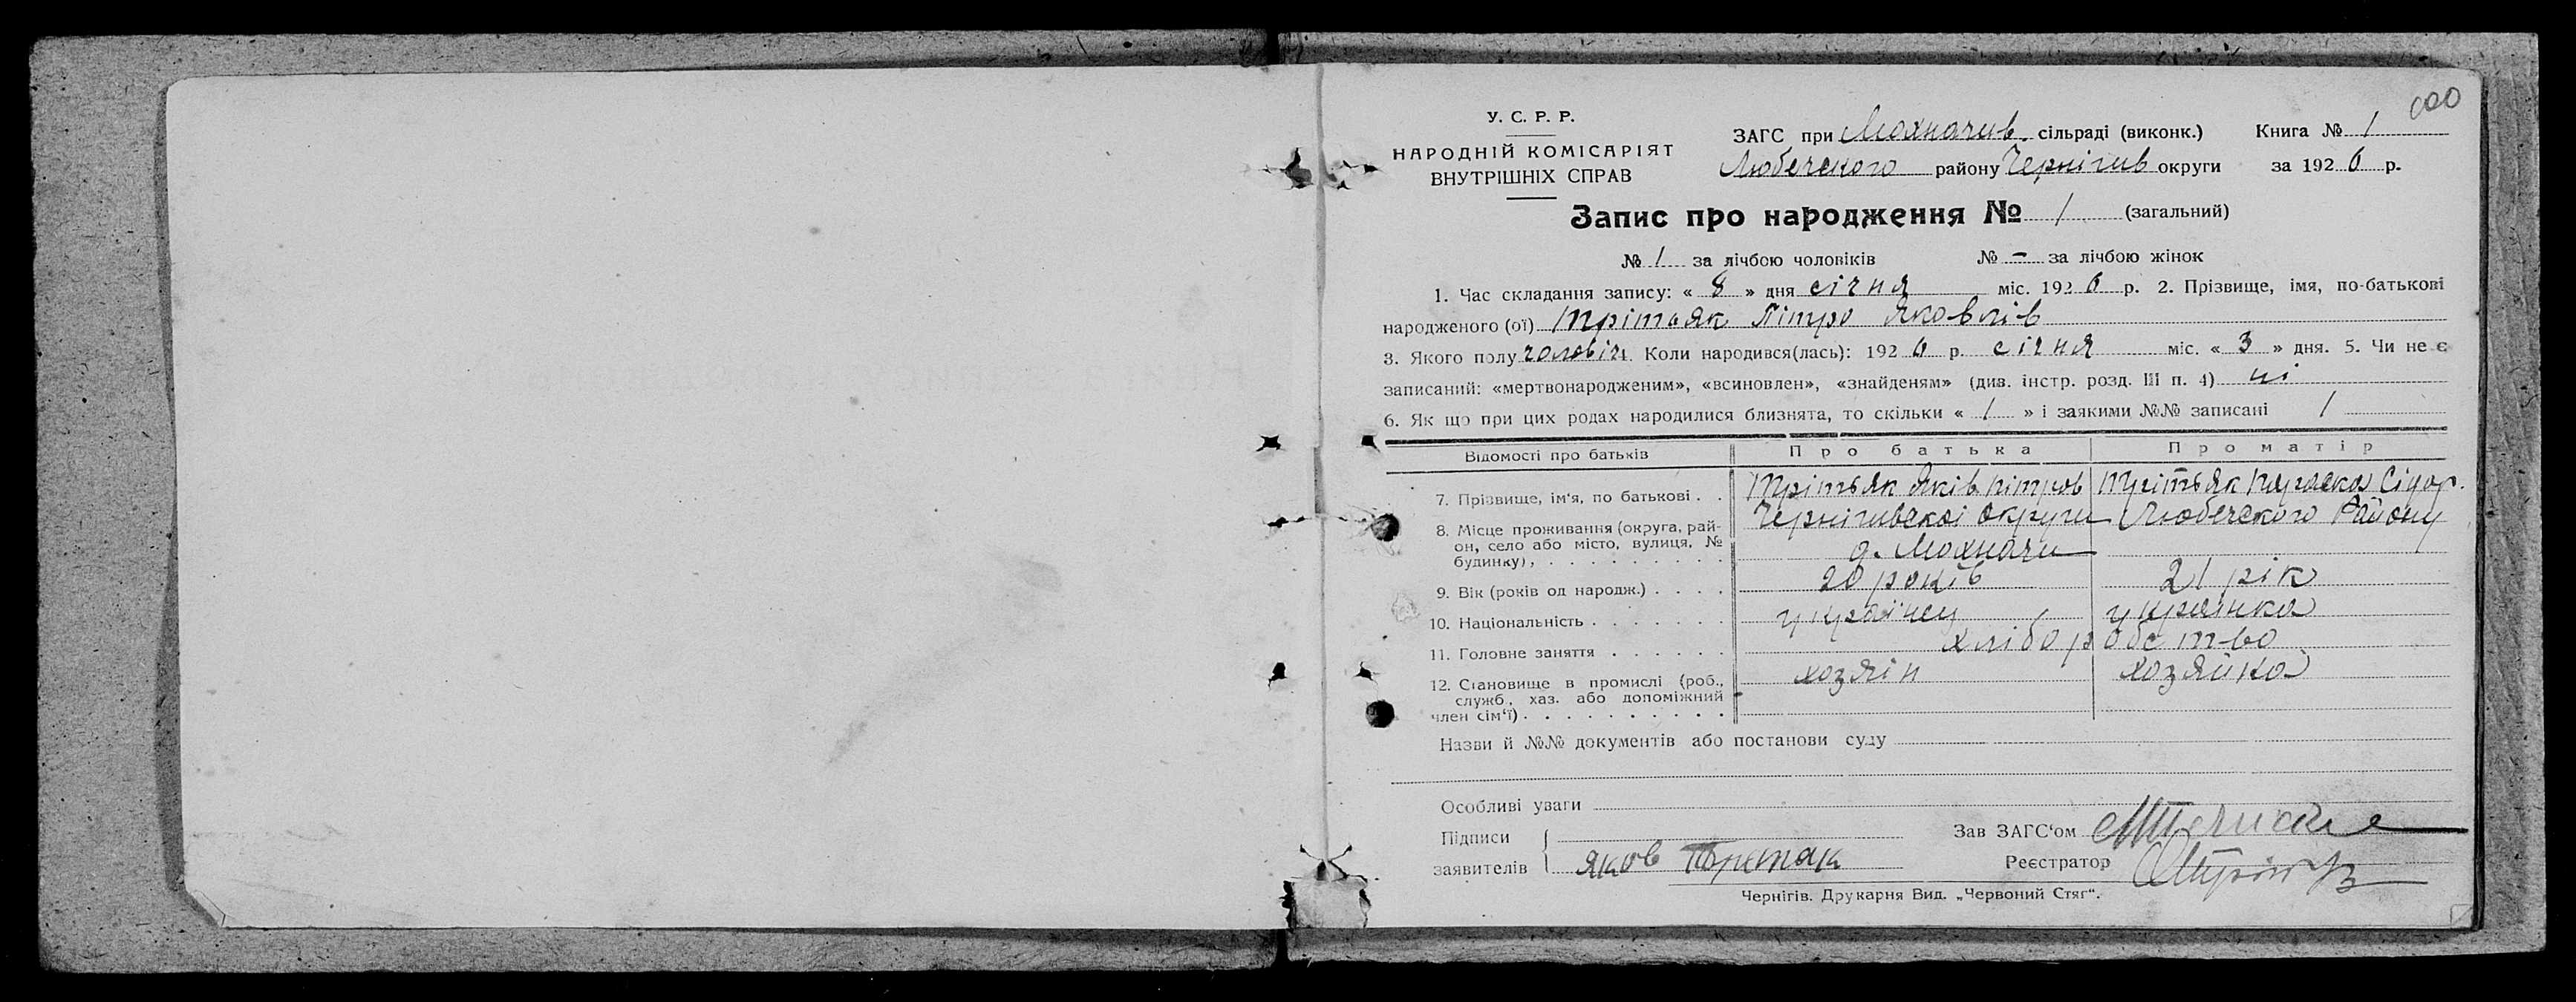 600
У. С. Р. Р.
НАРОДНІЙ КОМІСАРІЯТ
ВНУТРІШНІХ СПРАВ
ЗАГС при Мохначив. сільраді (виконк.) Книга № 1
Любечского району Чернігив округи за 1926 р.
Запис про народження № 1 (загальний)
№ 1 за лічбою чоловіків № – за лічбою жінок
1. Час складання запису: « 8 » дня січня міс. 1926 р. 2. Прізвище, імя, по-батькові
народженого (ої) Трітьяк Пітро Яковлів
3. Якого полу чоловіч. Коли народився(лась): 1926 р. січня міс. « 3 » дня. 5. Чи не є
записаний: «мертвонародженим», «всиновлен», «знайденям» (див. інстр. розд. III п. 4) ні
6. Як що при цих родах народилися близнята, то скільки « / » і заякими №№ записані /
Відомості про батьків Про батька Про матір
7. Прізвище, ім'я, по батькові . . Трітьяк Яків Пітров Трітьяк Параска Сідор.
8. Місце проживання (округа, рай- Чернігивскоі округи Любечского Району
он, село або місто, вулиця, № д. Мохначи
будинку), . . . . . . . . .
9. Вік (років од народж.) . . . . 20 років 21 рік
10. Національність . . . . . . . украінец украінка
11. Головне заняття . . . . . . хліборобст-во
12. Становище в промислі (роб., хозяін хозяйка
служб., хаз. або допоміжний
член сім'ї) . . . . . . . . . .
Назви й №№ документів або постанови суду
Особливі уваги
Підписи
заявителів Яков Третяк
Зав ЗАГС'ом
Реєстратор
Чернігів. Друкарня Вид. „Червоний Стяг".